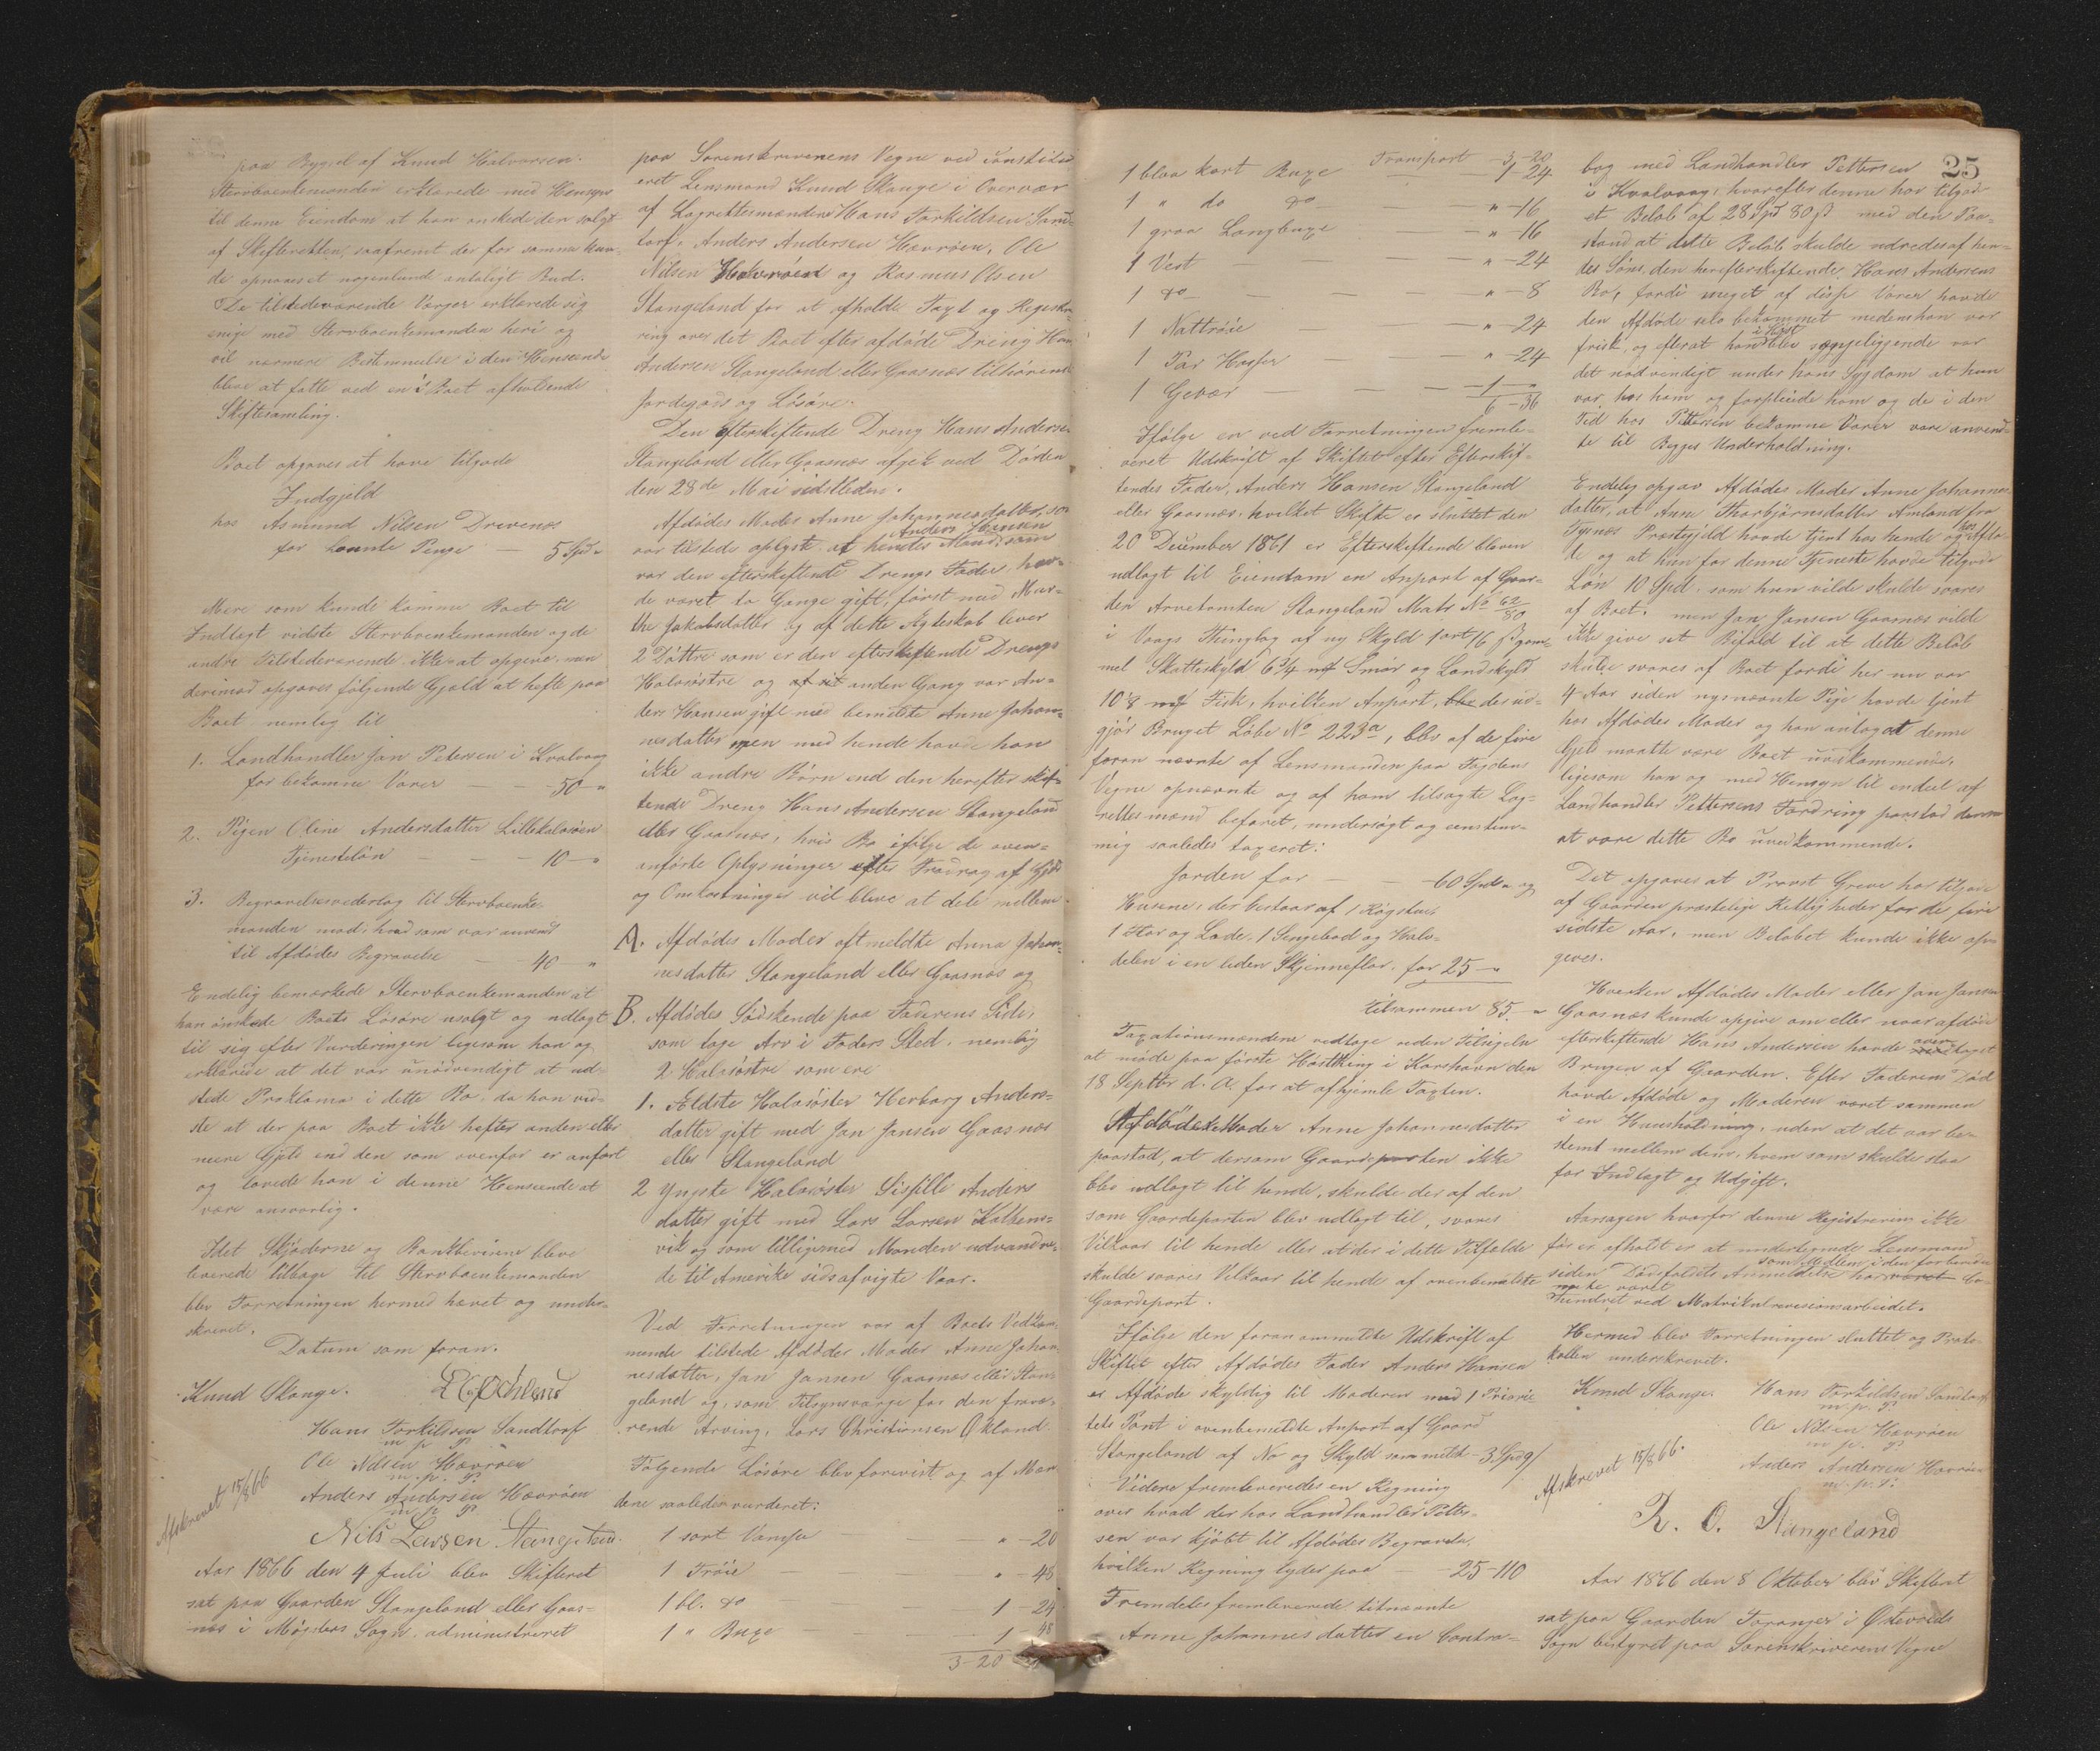 paa Bygsel af Knud Halvorsen.
Stervboenkemanden erklærede med Hensyn
til denne Eiendom at han ønskede den solgt
af Skifteretten, saafremt der for samme kun-
de opnaaes et nogenlunde antageligt Bud.
De tilstedeværende Verger erklærede sig
enige med Stervboenkemanden heri og
vil nærmere Bestemmelse i den Henseende
blive at fatte ved en i Boet afholdende
Skiftesamling.
Boet opgaves at have tilgode
Indgjeld
hos Asmund Nilsen Drivenæs
for laante Penge — 5 Spd "
Mere som kunde komme Boet til
Indtægt vidste Stervboenkemanden og de
andre Tilstedeværende ikke at opgive, men
derimod opgaves følgende Gjæld at hefte paa
Boet nemlig til
1. Landhandler Jan Petersen i Kvalvaag
for bekomne Varer — — 50 — "
2. Pigen Oline Andersdatter Lillekalsøen
Tjenesteløn — — — 10 — "
3. Begravelsesvederlag til Stervboenke-
manden mod, hvad som var anvendt
til Afdødes Begravelse — 40 — "
Endelig bemærkede Stervboenkemanden at
han ønskede Boets Løsøre usolgt og udlagt
til sig efter Vurderingen ligesom han og
erklærede at det var unødvendigt at ud-
stede Proklama i dette Bo, da han vid-
ste at der paa Boet ikke hefter anden eller
mere Gjæld end den som ovenfor er anført
og lovede han i denne Henseende at
være ansvarlig.
Idet Skjøderne og Bankbevisene bleve
leverede tilbage til Stervboenkemanden
blev Forretningen hermed hævet og under-
skrevet.
Datum som foran.
Knud Stange.
Hans Torkildsen Sandtorf
m p P
Ole Nilsen Hævrøen
m. p. P.
Anders Andersen Hævrøen
m p P
Nils Larsen Stangeland
Afskrevet 15/8 66
Aar 1866 den 4 Juli blev Skifteret
sat paa Gaarden Stangeland eller Gaas-
næs i Møgsters Sogn administreret
paa Sorenskriverens Vegne ved constitu-
eret Lensmand Knud Stange i Overvær
af Lagrettesmændene Hans Torkildsen Sand-
torf, Anders Andersen Hævrøen, Ole
Nilsen Hævrøen og Rasmus Olsen
Stangeland for at afholde Taxt og Registre-
ring over det Boet efter afdøde Dreng Hans
Andersen Stangeland eller Gaasnæs tilhørende
Jordegods og Løsøre.
Den Efterskiftende Dreng Hans Andersen
Stangeland eller Gaasnæs afgik ved Døden
den 28de Mai sidstleden.
Afdødes Moder Anne Johannesdatter, som
var tilstede oplyste at hendes Mand Anders Hansen som
var den efterskiftende Drengs Fader, hav-
de været to Gange gift, først med Mar-
the Jakobsdatter og af dette Ægteskab lever
2 Døttre som er den efterskiftende Drengs
Halvsøstre og anden Gang var An-
ders Hansen gift med bemeldte Anne Johan-
nesdatter men med hende havde han
ikke andre Børn end den herefterskif-
tende Dreng Hans Andersen Stangeland
eller Gaasnæs, hvis Bo ifølge de oven-
anførte Oplysninger efter Fradrag af Gjæld
og Omkostninger vil blive at dele mellem
A. Afdødes Moder oftmeldte Anna Johan-
nesdatter Stangeland eller Gaasnæs og
B. Afdødes Sødskende paa Faderens Side,
som tage Arv i Faders Sted, nemlig
2 Halvsøstre som ere
1. Ældste Halvsøster Herborg Anders-
datter gift med Jan Jansen Gaasnæs
eller Stangeland
2 Yngste Halvsøster Sissille Anders
datter gift med Lars Larsen Kolbens-
vik og som tilligemed Manden udvandre-
de til Amerika sidsafvigte Vaar.
Ved Forretningen var af Boets Vedkom-
mende tilstede Afdødes Moder Anne Johan-
nesdatter, Jan Jansen Gaasnæs eller Stan-
geland og, som Tilsynsværge for den fravæ-
rende Arving, Lars Christiansen Økland.
Følgende Løsøre blev forevist og af Mæn-
dene saaledes vurderet:
1 sort Vams — — " — 20
1 Trøie — — " — 48
1 bl. do — — 1 — 24
1 " Buxe — — 1 48
3-20
25
Transport — 3-20
1 blaa kort Buxe — — 1-24
1 " do do — — " -16
1 graa Langbuxe — — " -16
1 Vest — — " -24
1 do — — " -8
1 Nattrøie — — " -24
1 Par Hoser — — " -24
1 Gevær — — 1 — "
6-36
Ifølge en ved Forretningen fremle-
veret Udskrift af Skiftet efter Efterskif-
tendes Fader, Anders Hansen Stangeland
eller Gaasnæs, hvilket Skifte er sluttet den
20 December 1861 er Efterskiftende bleven
udlagt til Eiendom en Anpart af Gaar-
den Arvetomten Stangeland Matr No 62/80
i Vaags Thinglag af ny Skyld 1 ort 16 ß gam-
mel Skatteskyld 6 3/4 Smør og Landskyld
10 1/8 Fisk, hvilken Anpart, der ud-
gjør Bruget Løbe No 223a, blev af de fire
foran nævnte af Lensmanden paa Fogdens
Vegne opnævnte og af ham tilsagte Lag-
rettesmænd befaret, undersøgt og eenstem-
mig saaledes taxeret:
Jorden for — — 60 Spd " og
Husene, der bestaar af 1 Røgstue,
1 Stor og Lade, 1 Sengebod og Halv-
delen i en liden Skjenneflor, for 25 — "
tilsammen 85. — "
Taxationsmændene vedtoge uden Tilsigeln
at møde paa første Høstthing i Korshavn den
18 Septbr d. A. for at afhjemle Taxten.
Afdødes Moder Anne Johannesdatter
paastod, at dersom Gaardeparten ikke
blev udlagt til hende, skulde der af den
som Gaardeparten blev udlagt til, svares
Vilkaar til hende eller at der i dette Tilfælde
skulde svares Vilkaar til hende af ovenbemeldte
Gaardepart.
Ifølge den foranommeldte Udskrift af
Skiftet efter Afdødes Fader Anders Hansen
er Afdøde skyldig til Moderen mod 1 Priorite-
tets Pant i ovenbemeldte Anpart af Gaard
Stangeland af No og Skyld som meldt — 3 Spd 9 ß
Videre fremleveredes en Regning
over hvad der hos Landhandler Petter-
sen var kjøbt til Afdødes Begravelse,
hvilken Regning lyder paa — 25-110
Fremdeles fremleverede titnævnte
Anne Johannesdatter en Contra-
bog med Landhandler Pettersen
i Kvalvaag, hvorefter denne har tilgode
et Beløb af 28 Spd 80 ß med den Paa-
stand at dette Beløb skulde udredes af hen-
des Søns, den herefterskiftende, Hans Andersens
Bo, fordi meget af disse Varer havde
den Afdøde selv bekommet medens han var
frisk, og efterat han i Høst blev sygeliggende var
det nødvendigt under hans Sygdom at hun
var hos ham og forpleiede ham og de i den
Tid hos Pettersen bekomne Varer vare anvend-
te til Begges Underholdning.
Endelig opgav Afdødes Moder Anne Johannes-
datter, at Anne Thorbjørnsdatter Amland fra
Tysnæs Præstegjeld havde tjent hos hende og hos Afdø-
de og at hun for denne Tjeneste havde tilgode
Løn 10 Spd. som hun vilde skulde svares
af Boet. men Jan Jansen Gaasnæs vilde
ikke give sit Bifald til at dette Beløb
skulde svares af Boet fordi her nu var
4 Aar siden nysnævnte Pige havde tjent
hos Afdødes Moder og han antog at denne
Gjeld maatte være Boet uvedkommende,
ligesom han og med Hensyn til endeel af
Landhandler Pettersens Fordring paastod denne
at være dette Bo uvedkommende.
Det opgaves at Provst Greve har tilgode
af Gaarden præstelige Rettigheder for de fire
sidste Aar, men Beløbet kunde ikke op-
gives.
Hverken Afdødes Moder eller Jan Jansen
Gaasnæs kunde opgive om eller naar afdøde
efterskiftende Hans Andersen havde overtaget
Brugen af Gaarden. Efter Faderens Død
havde Afdøde og Moderen været sammen
i en Huusholdning, uden at det var be-
stemt mellem dem, hvem som skulde staa
for Indtægt og Udgift.
Aarsagen hvorfor denne Registrering ikke
før er afholdt er at undertegnede Lensmand
siden Dødsfaldets Anmeldelse har som Medlem i den forberedende
været
hindret ved Matrikulrevisionsarbeidet.
Hermed blev Forretningen sluttet og Proto-
kollen underskrevet.
Knud Stange. Hans Torkildsen Sandtorf
m. p. P.
Ole Nilsen Hævrøen
m p. P
Anders Andersen Hævrøen
m. p. P.
Afskrevet 15/8 66.
R. O. Stangeland
Aar 1866 den 8 Oktober blev Skifteret
sat paa Gaarden Toranger i Østevreds
Sogn bestyret paa Sorenskriverens Vegne